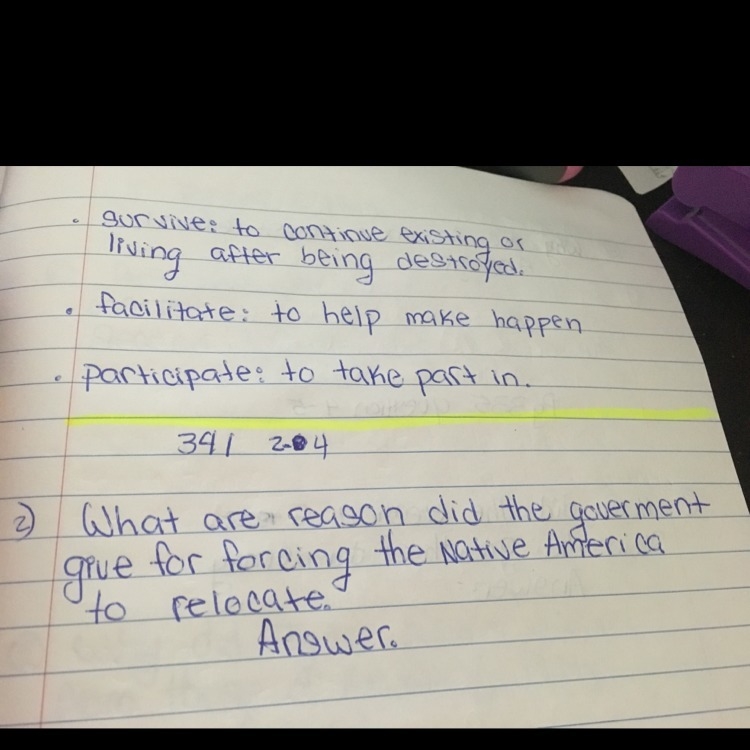 · survive: to continue existing or
living after being destroyed.
· facilitate: to help make happen
· participate: to take part in.
341 2-4
2) What are reason did the goverment
give for forcing the Native America
to relocate.
Answer.